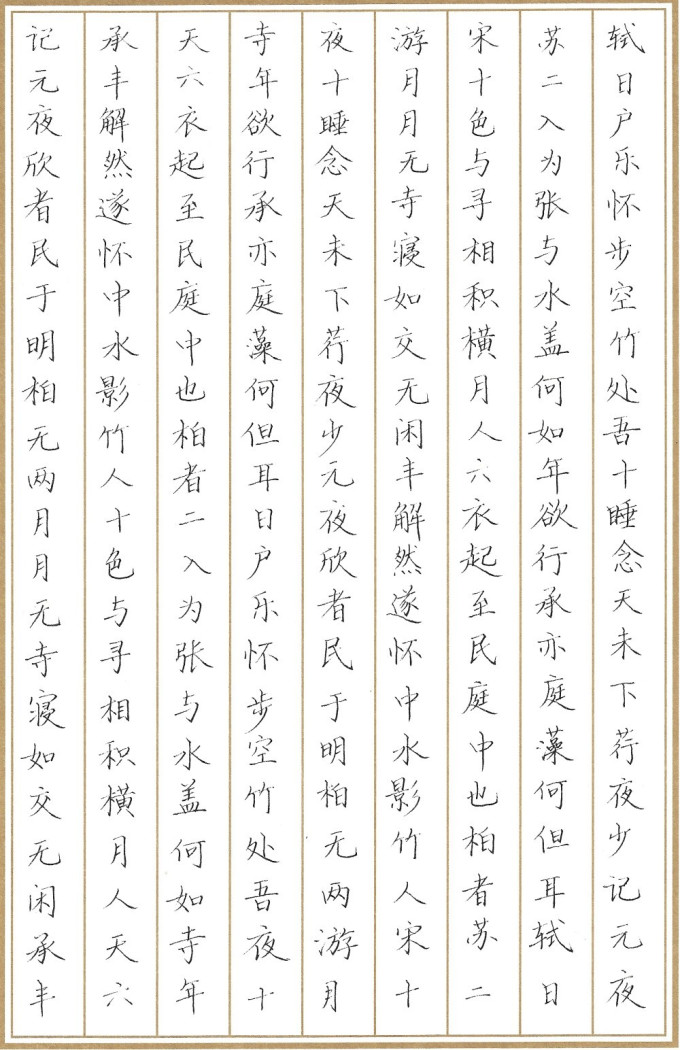 轼日户乐怀步空竹处吾十睡念天未下荇夜少记元夜
苏二入为张与水盖何如年欲行承亦庭藻何但耳轼日
宋十色与寻相积横月人六衣起至民庭中也柏者苏二
游月月无寺寝如交无闲丰解然遂怀中水影竹人宋十
夜十睡念天未下荇夜少元夜欣者民于明柏无两游月
寺年欲行承亦庭藻何但耳日户乐怀步空竹处吾夜十
天六衣起至民庭中也柏者二入为张与水盖何如寺年
承丰解然遂怀中水影竹人十色与寻相积横月人天六
记元夜欣者民于明柏无两月月无寺寝如交无闲承丰